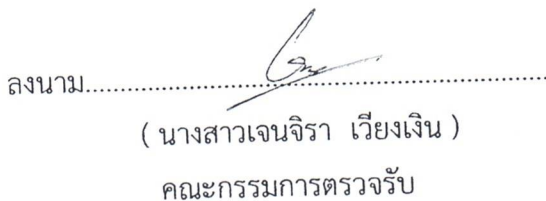 ลงนาม........................................................................
( นางสาวเจนจิรา เวียงเงิน )
คณะกรรมการตรวจรับ